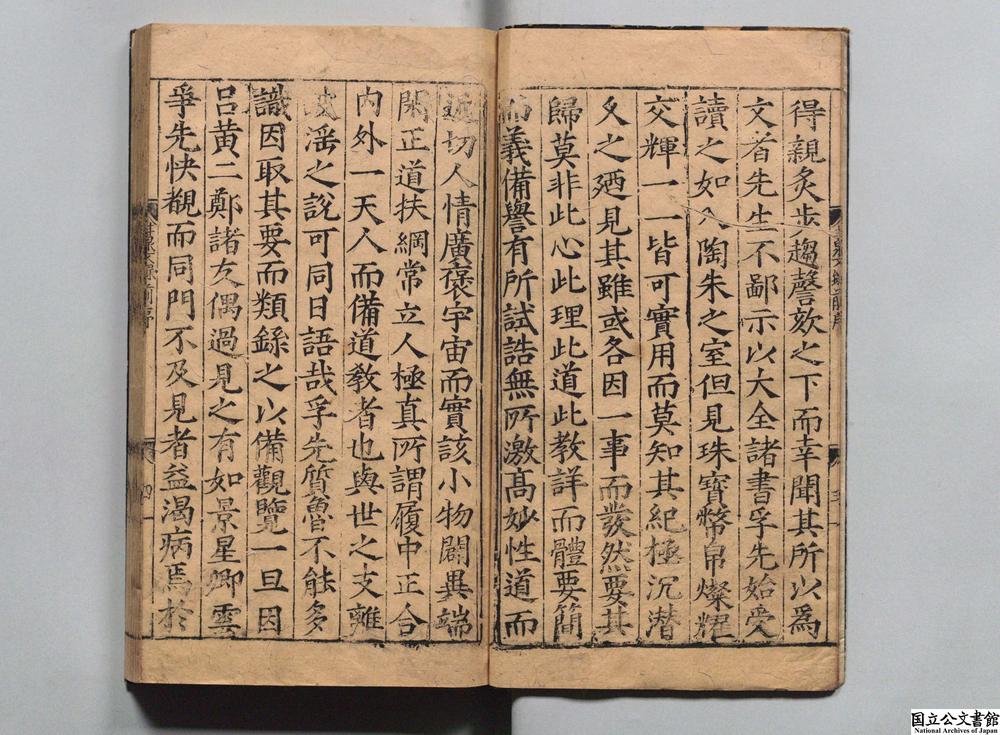 得親炙步趨謦欬之下而幸聞其所以爲
文者先生不鄙示以大全諸書孚先始受
讀之如入陶朱之室但見珠寶幣帛燦耀
交輝一一皆可實用而莫知其紀極沉潜
久之廼見其雖或各因一事而發然要其
歸莫非此心此理此道此教詳而體要簡
而義備譽有所試誥無所激高妙性道而
近切人情廣褒宇宙而實該小物闢異端
閑正道扶綱常立人極真所謂履中正合
內外一天人而備道教者也與世之支離
淫之說可同日語哉孚先質魯不能多
識因取其要而類錄之以備觀覽一旦因
呂黃二鄭諸友偶過見之有如景星卿雲
爭先快覩而同門不及見者益渴病焉於
前序
四
国立公文書館
National Archives of Japan